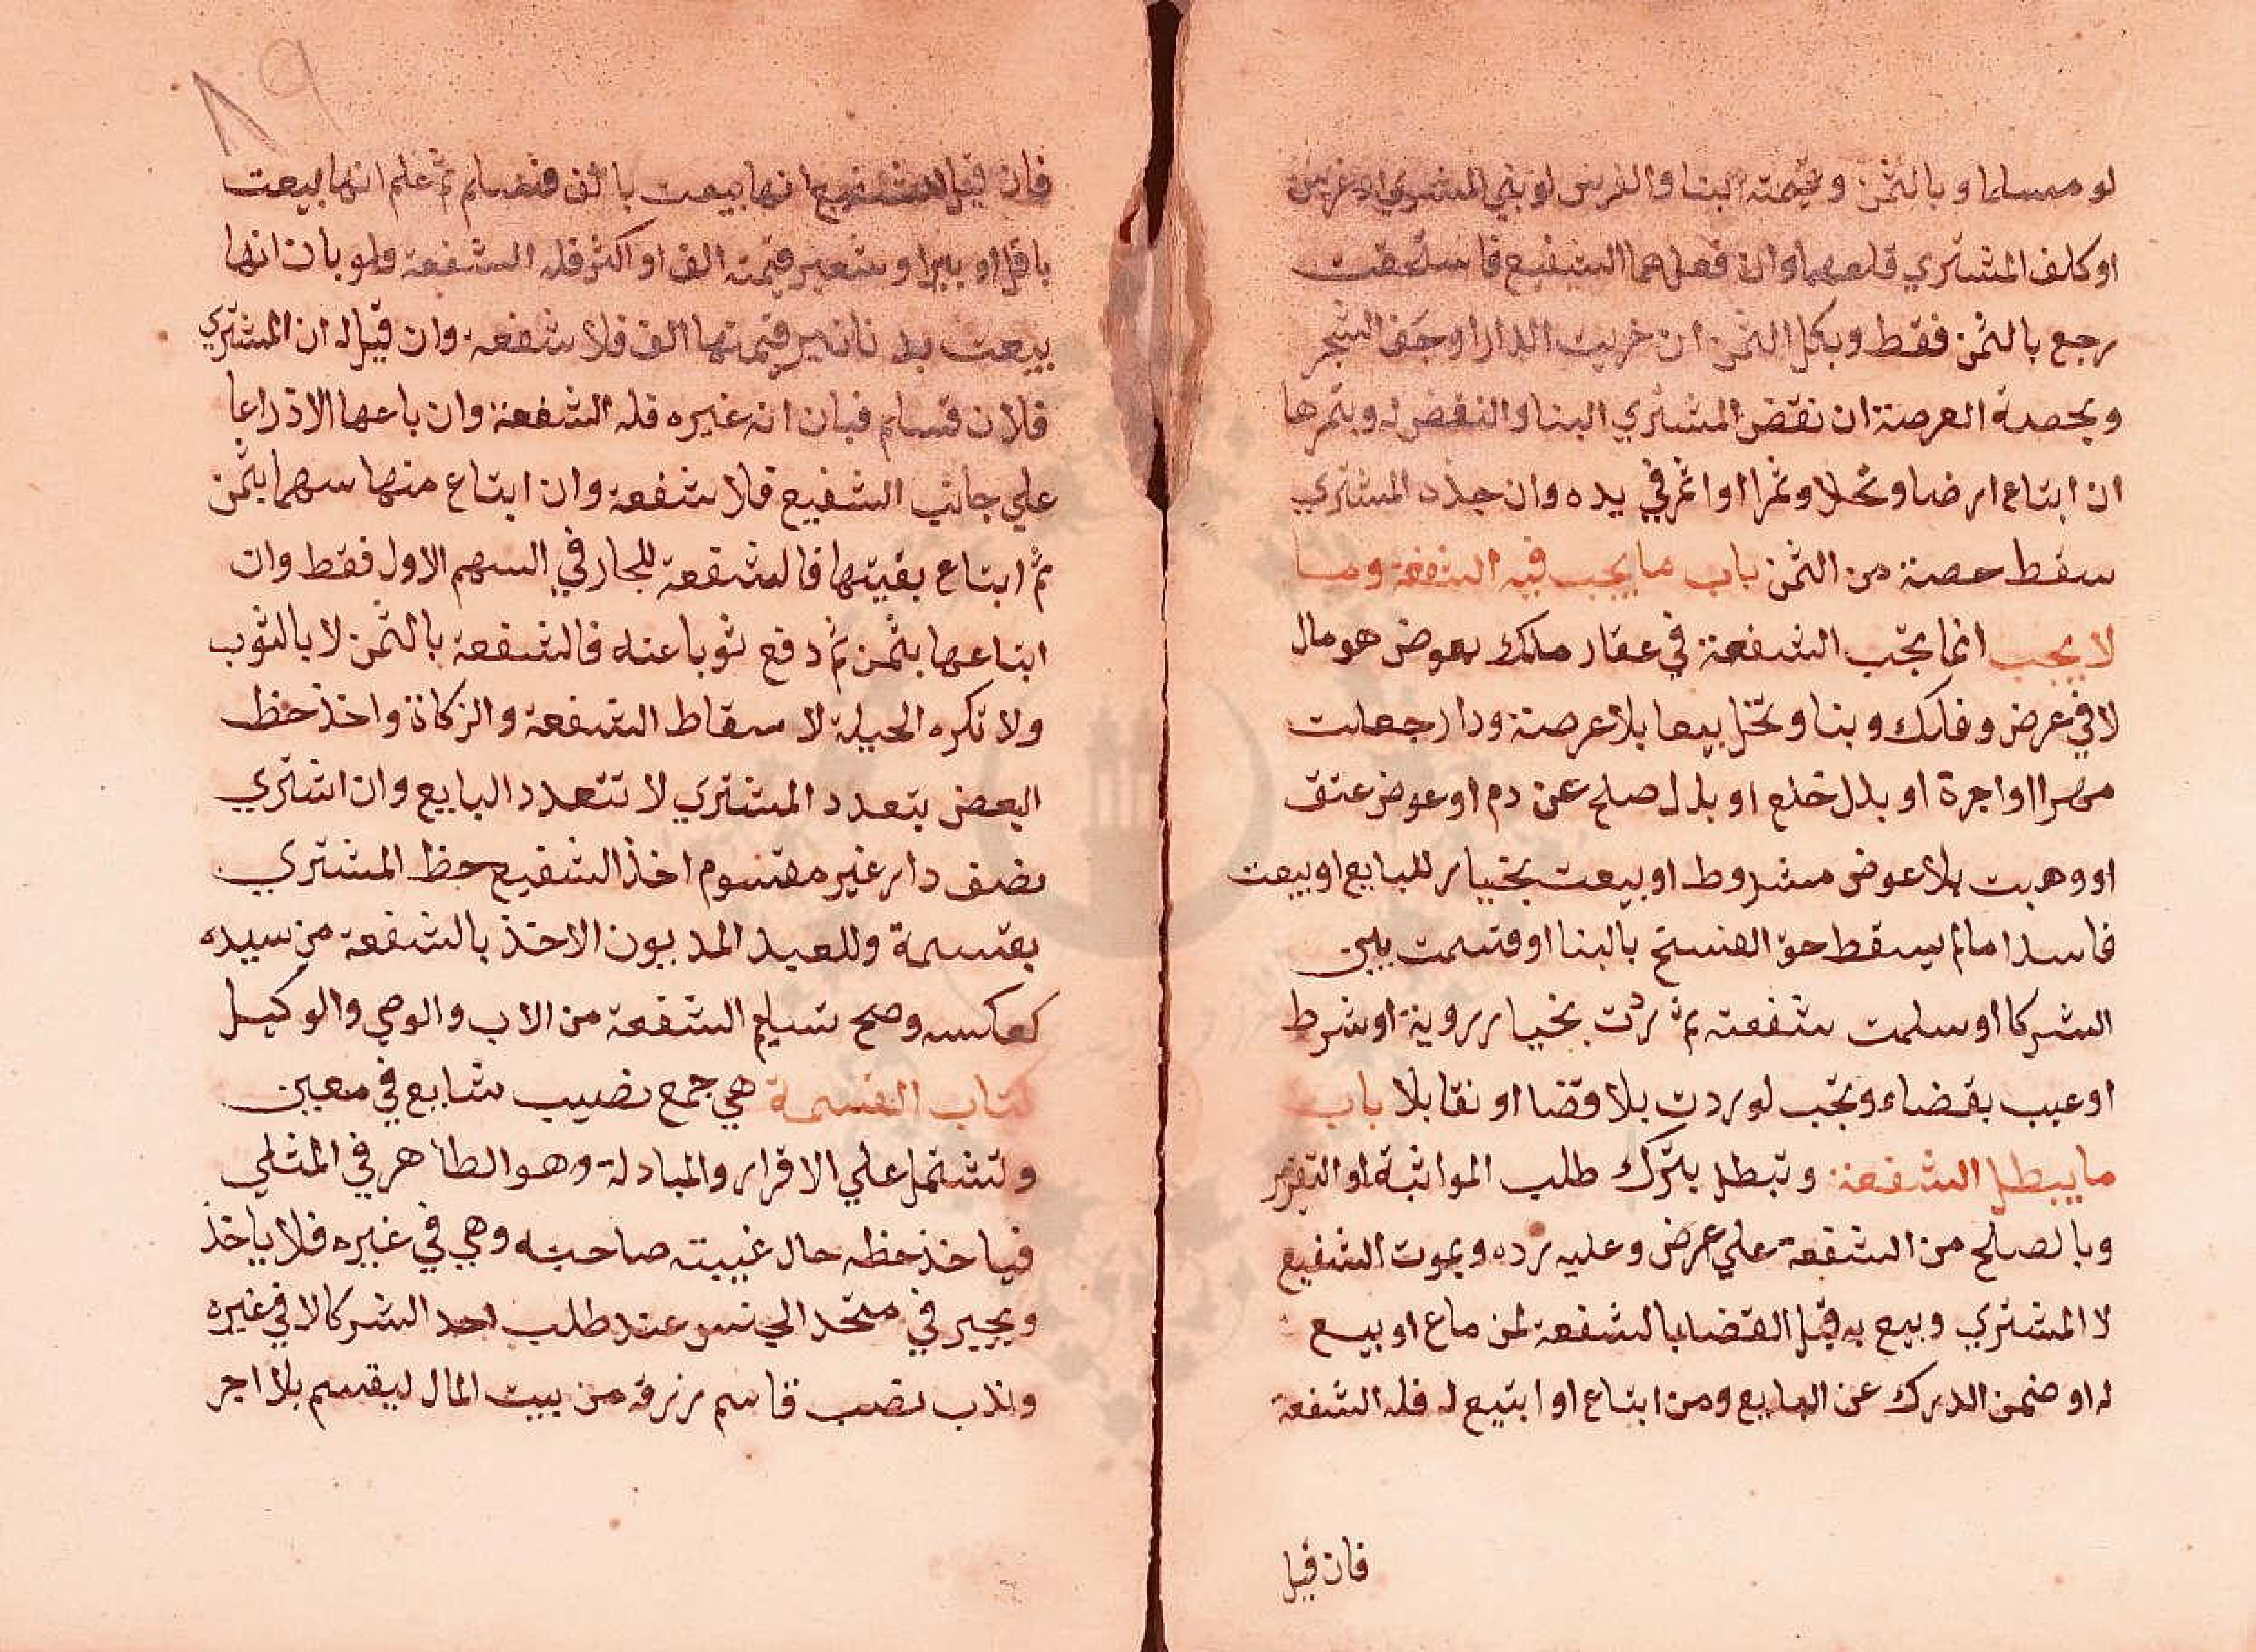 لو مسلما وبالثمن وقيمته البنا والغرس لو بني المشتري او غرس
او كلف المشتري قلعهما وان فعلهما الشفيع فاستحقت
رجع بالثمن فقط وبكل الثمن ان خربت الدار او جف الشجر
وبحصة العرصة ان نقض المشتري البنا والنقض له وبثمرها
ان ابتاع ارضا ونخلا وثمرا او اثمر في يده وان جدد المشتري
سقط حصة من الثمن باب ما يجب فيه الشفعة وما
لا يجب انما تجب الشفعة في عقار ملك بعوض هو مال
لا في عرض وفلك وبنا ونخل بيعا بلا عرصة ودار جعلت
مهرا او اجرة او بدل خلع او بدل صلح عن دم او عوض عتق
او وهبت بلا عوض مشروط او بيعت بخيار للبايع او بيعت
فاسدا ما لم يسقط حق الفسخ بالبنا او قسمت بين
الشركا او سلمت شفعته ثم ردت بخيار روية او شرط
او عيب بقضاء وتجب لو ردت بلا قضا او تقابلا باب
ما يبطل الشفعة وتبطل بترك طلب المواثبة او التقرير
وبالصلح من الشفعة علي عرض وعليه رده وبموت الشفيع
لا المشتري وبيع به قبل القضا بالشفعة لمن ماع او بيع
له او ضمن الدرك عن البايع ومن ابتاع او ابتيع له فله الشفعة
فان قيل
٨٩
فان قيل للشفيع انها بيعت بالف فسلم ثم علم انها بيعت
باقل او ببر او شعير قيمته الف او اكثر فله الشفعة ولو بان انها
بيعت بدنانير قيمتها الف فلا شفعة وان قيل له ان المشتري
فلان فسلم فبان انه غيره فله الشفعة وان باعها الا ذراعا
علي جانب الشفيع فلا شفعة وان ابتاع منها سهما بثمن
ثم ابتاع بقيتها فالشفعة للجار في السهم الاول فقط وان
ابتاعها بثمن ثم دفع ثوبا عنه فالشفعة بالثمن لا بالثوب
ولا تكره الحيلة لا سقاط الشفعة والزكاة واخذ حظ
البعض بتعدد المشتري لا تتعدد البايع وان اشتري
نصف دار غير مقسوم اخذ الشفيع حظ المشتري
بقسمة وللعبد المديون الاخذ بالشفعة من سيده
كعكسه وصح تسليم الشفعة من الاب والوصي والوكيل
كتاب القسمة هي جمع نصيب شايع في معين
وتشتمل علي الاقرار والمبادلة وهو الظاهر في المثلي
فياخذ حظه حال غيبته صاحبه وهي في غيره فلا ياخذ
ويجبر في متحد الجنس عند طلب احد الشركا لا في غيره
وندب نصب قاسم رزقه من بيت المال ليقسم بلا اجر